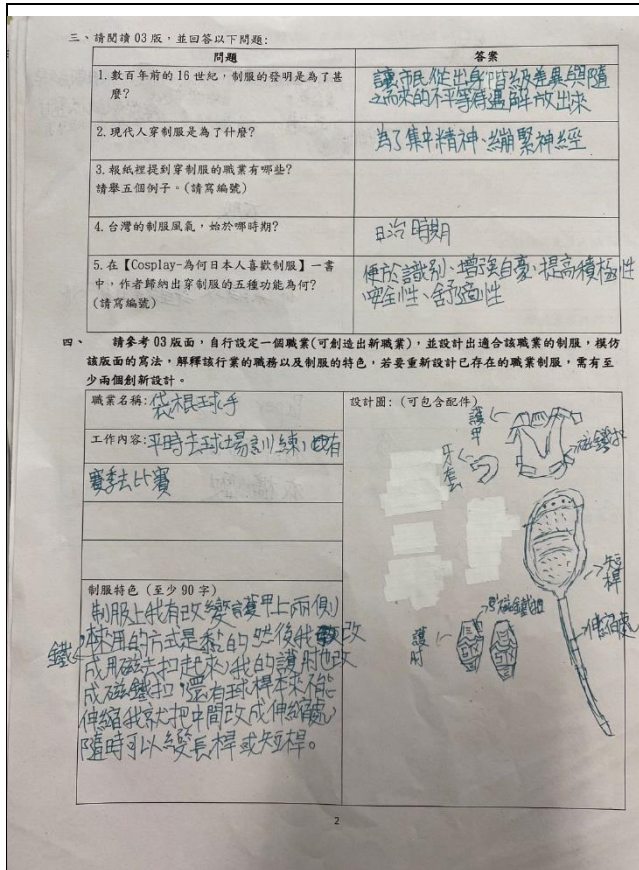 三、請閱讀 03 版，並回答以下問題:
問題
答案
1.數百年前的 16 世紀，制服的發明是為了甚
麼?
讓市民從出身階級差異與隨
之而來的不平等待遇解放出來
2.現代人穿制服是為了什麼?
為了集中精神、繃緊神經
3.報紙裡提到穿制服的職業有哪些?
請舉五個例子。(請寫編號)
4.台灣的制服風氣，始於哪時期?
日治時期
5.在【Cosplay-為何日本人喜歡制服】一書
中，作者歸納出穿制服的五種功能為何?
(請寫編號)
便於識別、增強自豪、提高積極性
安全性、舒適性
四、 請參考 03 版面，自行設定一個職業(可創造出新職業)，並設計出適合該職業的制服，模仿
該版面的寫法，解釋該行業的職務以及制服的特色，若要重新設計已存在的職業制服，需有至
少兩個創新設計。
職業名稱:袋棍球手
工作內容:平時去球場訓練，也有
賽季去比賽
制服特色（至少 90 字）
制服上我有改變護甲上兩側
採用的方式是黏的然後我改
成用磁鐵扣起來，我的護肘也改
成磁鐵扣，還有球桿本來不能
伸縮我就把中間改成伸縮處，
隨時可以變長桿或短桿。
設計圖:（可包含配件）
護甲
磁鐵扣
牙套
短桿
伸縮處
磁鐵扣
護肘
2